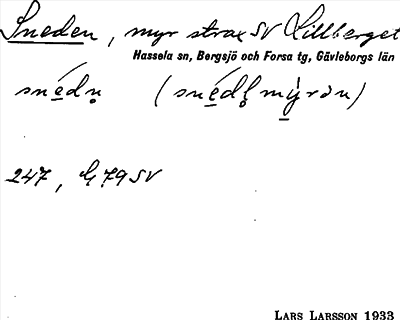 Sneden, myr strax SV Lillberget
Hassela sn, Bergsjö och Forsa tg, Gävleborgs län
snédn̥ (snédn̥ mýrən)
247, G 79 SV
LARS LARSSON 1933